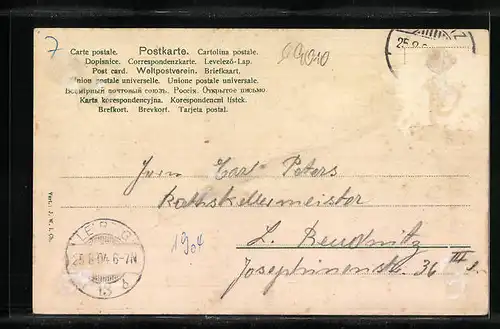 7
Carte postale. Postkarte. Cartolina postale.
Dopisnice. Correspondenzkarte. Levelező-Lap.
Post card. Weltpostverein. Briefkaart.
Union postale universelle. Unione postale universale.
Всемірный почтовый союзъ. Россія. Открытое письмо.
Karta korespondencyjna. Korespondencni listek.
Brefkort. Brevkort. Tarjeta postal.
Herrn Carl Peters
Rathskellermeister
L. Reudnitz
Josephinenstr. 36 III
1904
25.8.04. 6-7N